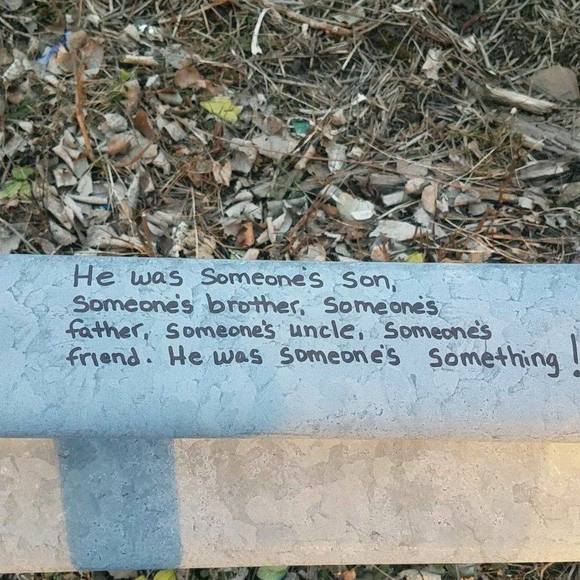 He was someone's son,
someone's brother, someone's
father, someone's uncle, someone's
friend. He was someone's something!